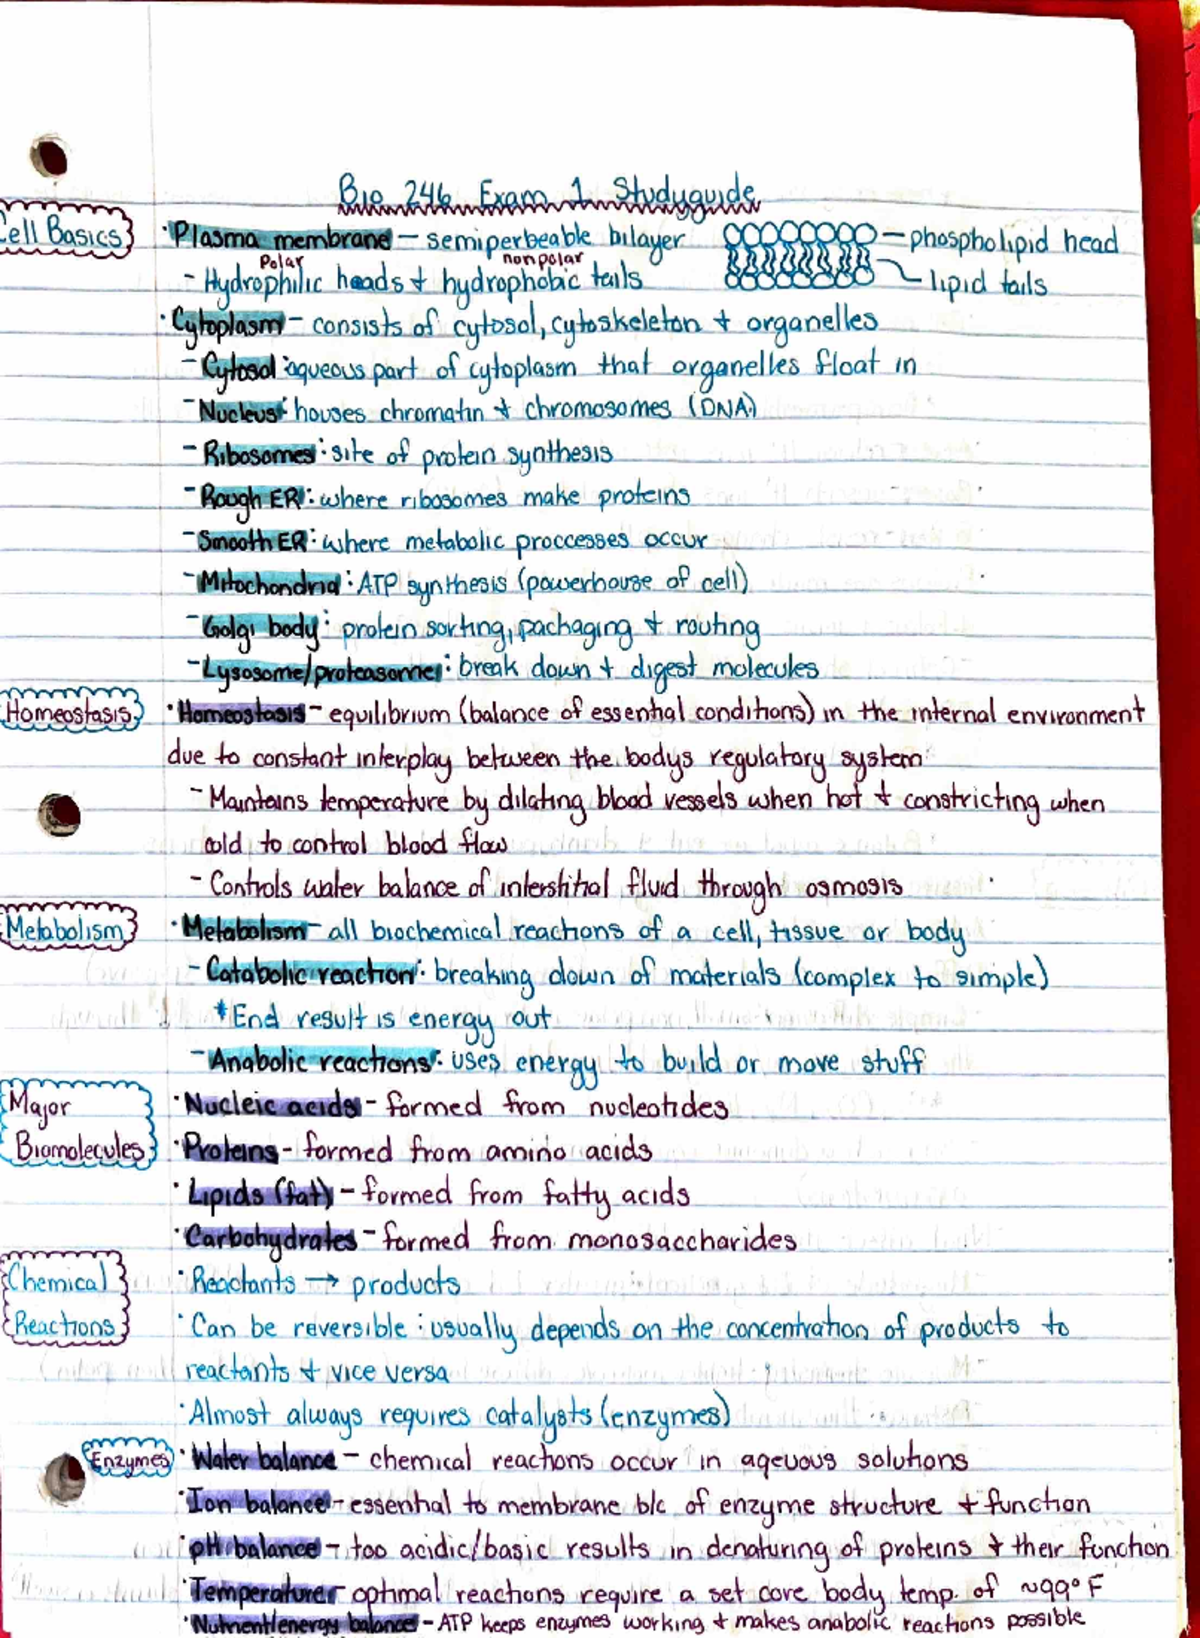 Bio 246 Exam 1 Studyguide
Cell Basics
· Plasma membrane – semiperbeable bilayer
– phospholipid head
polar nonpolar
- Hydrophilic heads + hydrophobic tails
lipid tails
· Cytoplasm – consists of cytosol, cytoskeleton + organelles
- Cytosol: aqueous part of cytoplasm that organelles float in
- Nucleus: houses chromatin + chromosomes (DNA)
- Ribosomes: site of protein synthesis
- Rough ER: where ribosomes make proteins
- Smooth ER: where metabolic proccesses occur
- Mitochondria: ATP synthesis (powerhouse of cell)
- Golgi body: protein sorting, packaging + routing
- Lysosome/proteasome: break down + digest molecules
Homeostasis
· Homeostasis – equilibrium (balance of essential conditions) in the internal environment
due to constant interplay between the bodys regulatory system
- Maintains temperature by dilating blood vessels when hot + constricting when
cold to control blood flow
- Controls water balance of interstitial fluid through osmosis
Metabolism
· Metabolism – all biochemical reactions of a cell, tissue or body
- Catabolic reaction: breaking down of materials (complex to simple)
* End result is energy out
- Anabolic reactions: uses energy to build or move stuff
Major
Biomolecules
· Nucleic acids – formed from nucleotides
· Proteins – formed from amino acids
· Lipids (fat) – formed from fatty acids
· Carbohydrates – formed from monosaccharides
Chemical
Reactions
· Reactants → products
· Can be reversible: usually depends on the concentration of products to
reactants + vice versa
· Almost always requires catalysts (enzymes)
Enzymes
· Water balance – chemical reactions occur in aqeuous solutions
· Ion balance – essential to membrane b/c of enzyme structure + function
· pH balance – too acidic/basic results in denaturing of proteins + their function
· Temperature – optimal reactions require a set core body temp. of ~99°F
· Nutrient/energy balance – ATP keeps enzymes working + makes anabolic reactions possible